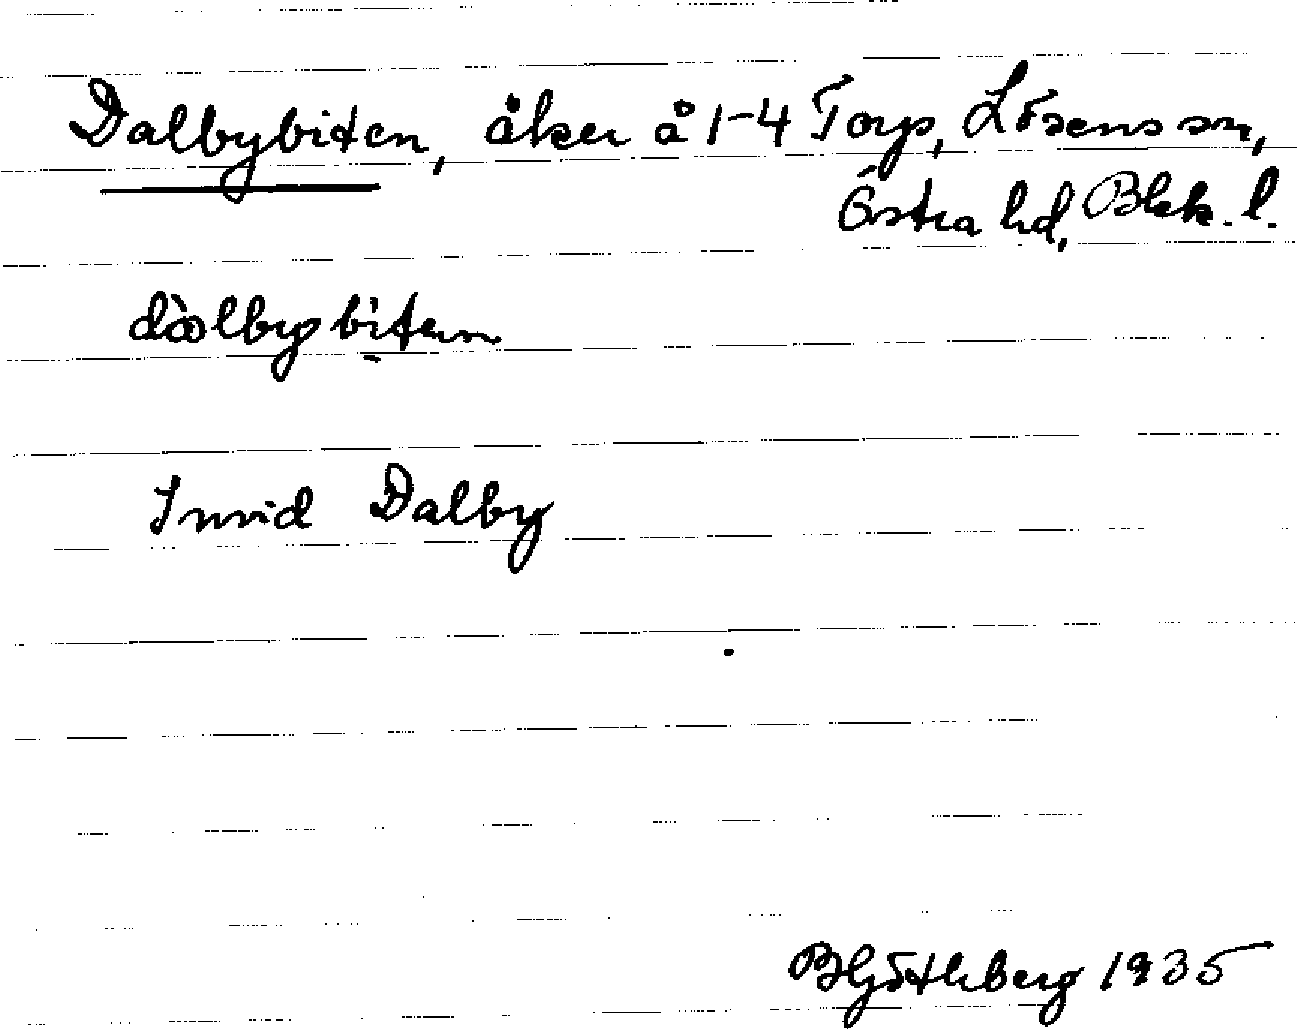 Dalbybiten, åker å 1-4 Torp, Lösens sn,
Östra hd, Blek. l.
dàlbybiten
Invid Dalby
B Götlberg 1935